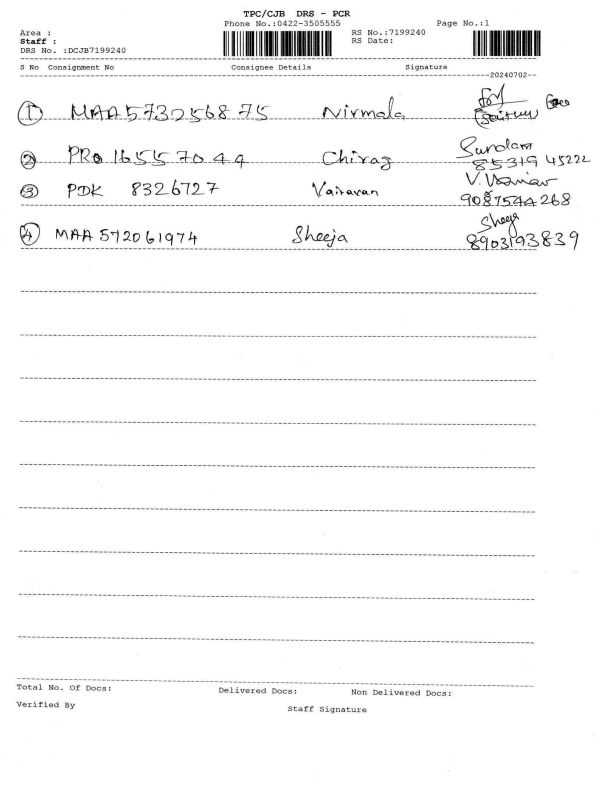 TPC/CJB DRS - PCR
Phone No.:0422-3505555 Page No.:1
Area : RS No.:7199240
Staff : RS Date:
DRS No. :DCJB7199240
S No Consignment No Consignee Details Signature
20240702
1 MAA573256875 Nirmala
2 PRO165557044 Chirag Sundar
85319 45222
3 PDK 8326727 Vairavan V.
9087544268
4 MAA572061974 Sheeja Sheeja
8903193839
Total No. Of Docs: Delivered Docs: Non Delivered Docs:
Verified By Staff Signature